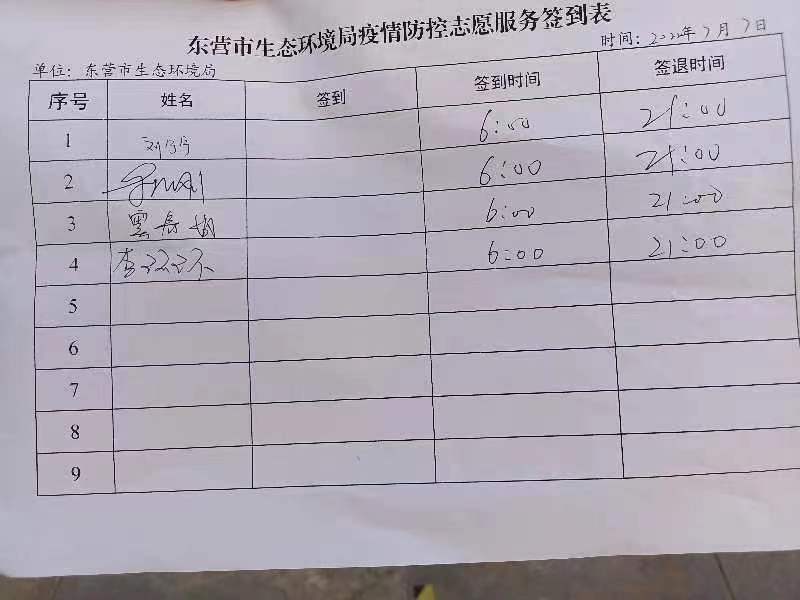 东营市生态环境局疫情防控志愿服务签到表
单位：东营市生态环境局 时间：2022年7月7日
序号 姓名 签到 签到时间 签退时间
1 6:00 21:00
2 6:00 21:00
3 6:00 21:00
4 李 6:00 21:00
5
6
7
8
9